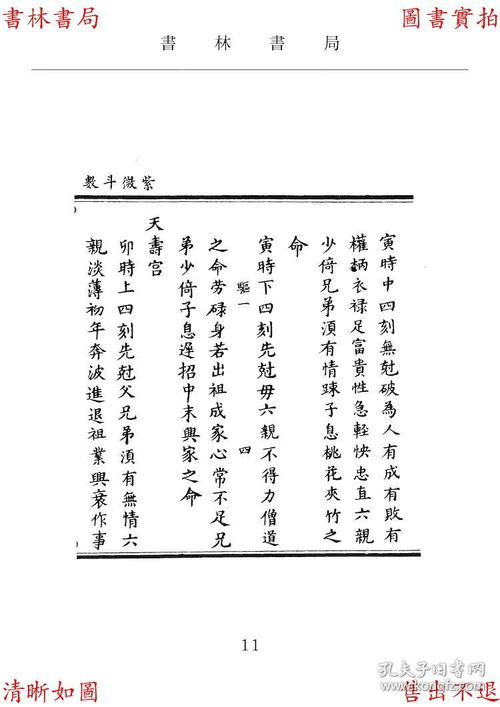 書林書局
圖書實拍
書林書局
紫微斗數
寅時中四刻無尅破為人有成有敗有
權柄衣祿足富貴性急輕快忠直六親
少倚兄弟須有情踈子息桃花夾竹之
命
寅時下四刻先尅毋六親不得力僧道
驅一
四
之命勞碌身若出祖成家心常不足兄
弟少倚子息遲招中末興家之命
天壽宮
卯時上四刻先尅父兄弟須有無情六
親淡薄初年奔波進退祖業興衰作事
11
清晰如圖
售出不退
孔夫子旧书网
www.kongfz.com